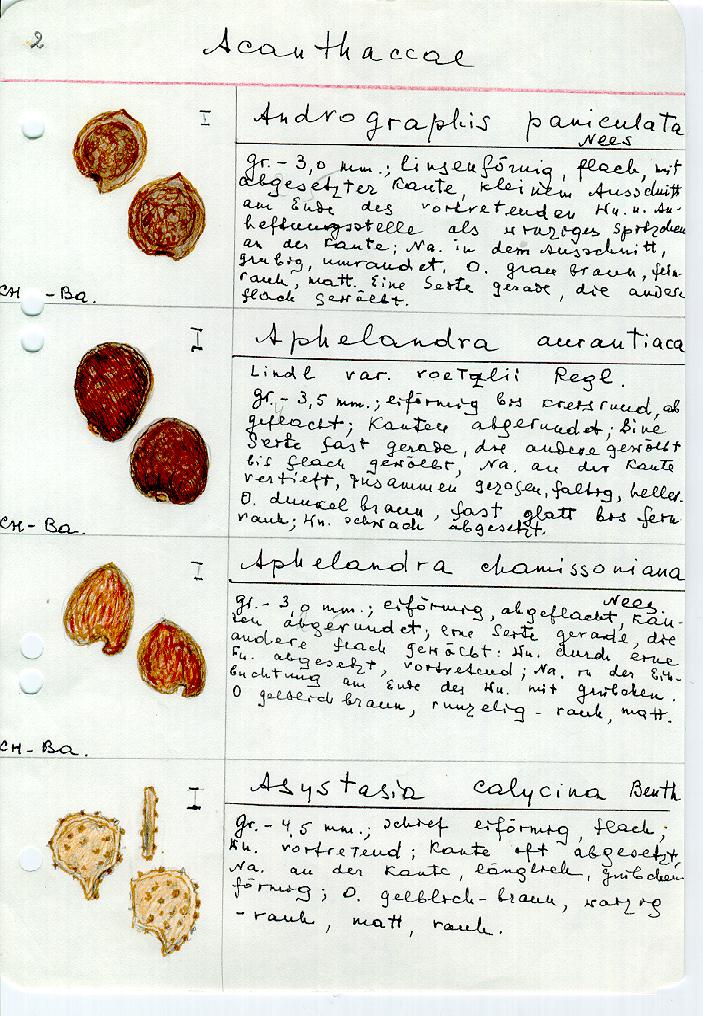 2
Acanthaceae
I
Andrographis paniculata
Nees
gr. - 3,0 mm.; linsenförmig, flach, mit
abgesetzter Kante, kleinem Ausschnitt
am Ende des vortretenden Wu. u. An-
heftungsstelle als winziges Spitzchen
an der Kante; Na. in dem Ausschnitt,
grubig, umrandet. O. grau braun, fein
rauh, matt. Eine Seite gerade, die andere
flach gewölbt.
CH - Ba.
I
Aphelandra aurantiaca
Lindl var. roetzlii Regl.
gr. - 3,5 mm.; eiförmig bis kreisrund, ab
geflacht; Kanten abgerundet; Eine
Seite fast gerade, die andere gewölbt
bis flach gewölbt, Na. an der Kante
vertieft, zusammen gezogen, faltig, heller.
O. dunkel braun, fast glatt bis fein
rauh; Wu. schwach abgesetzt.
CH - Ba.
I
Aphelandra chamissoniana
Nees.
gr. - 3,0 mm.; eiförmig, abgeflacht, Kan-
ten abgerundet; eine Seite gerade, die
andere flach gewölbt: Wu. durch eine
Fu. abgesetzt, vortretend; Na. in der Ein-
buchtung am Ende des Wu. mit Grübchen.
O gelblich braun, runzelig - rauh, matt.
CH - Ba.
I
Asystasia calycina Benth
gr. - 4,5 mm.; schief eiförmig, flach;
Wu. vortretend; Kante oft abgesetzt,
Na. an der Kante, länglich, grübchen
förmig; O. gelblich - braun, warzig
- rauh, matt, rauh.